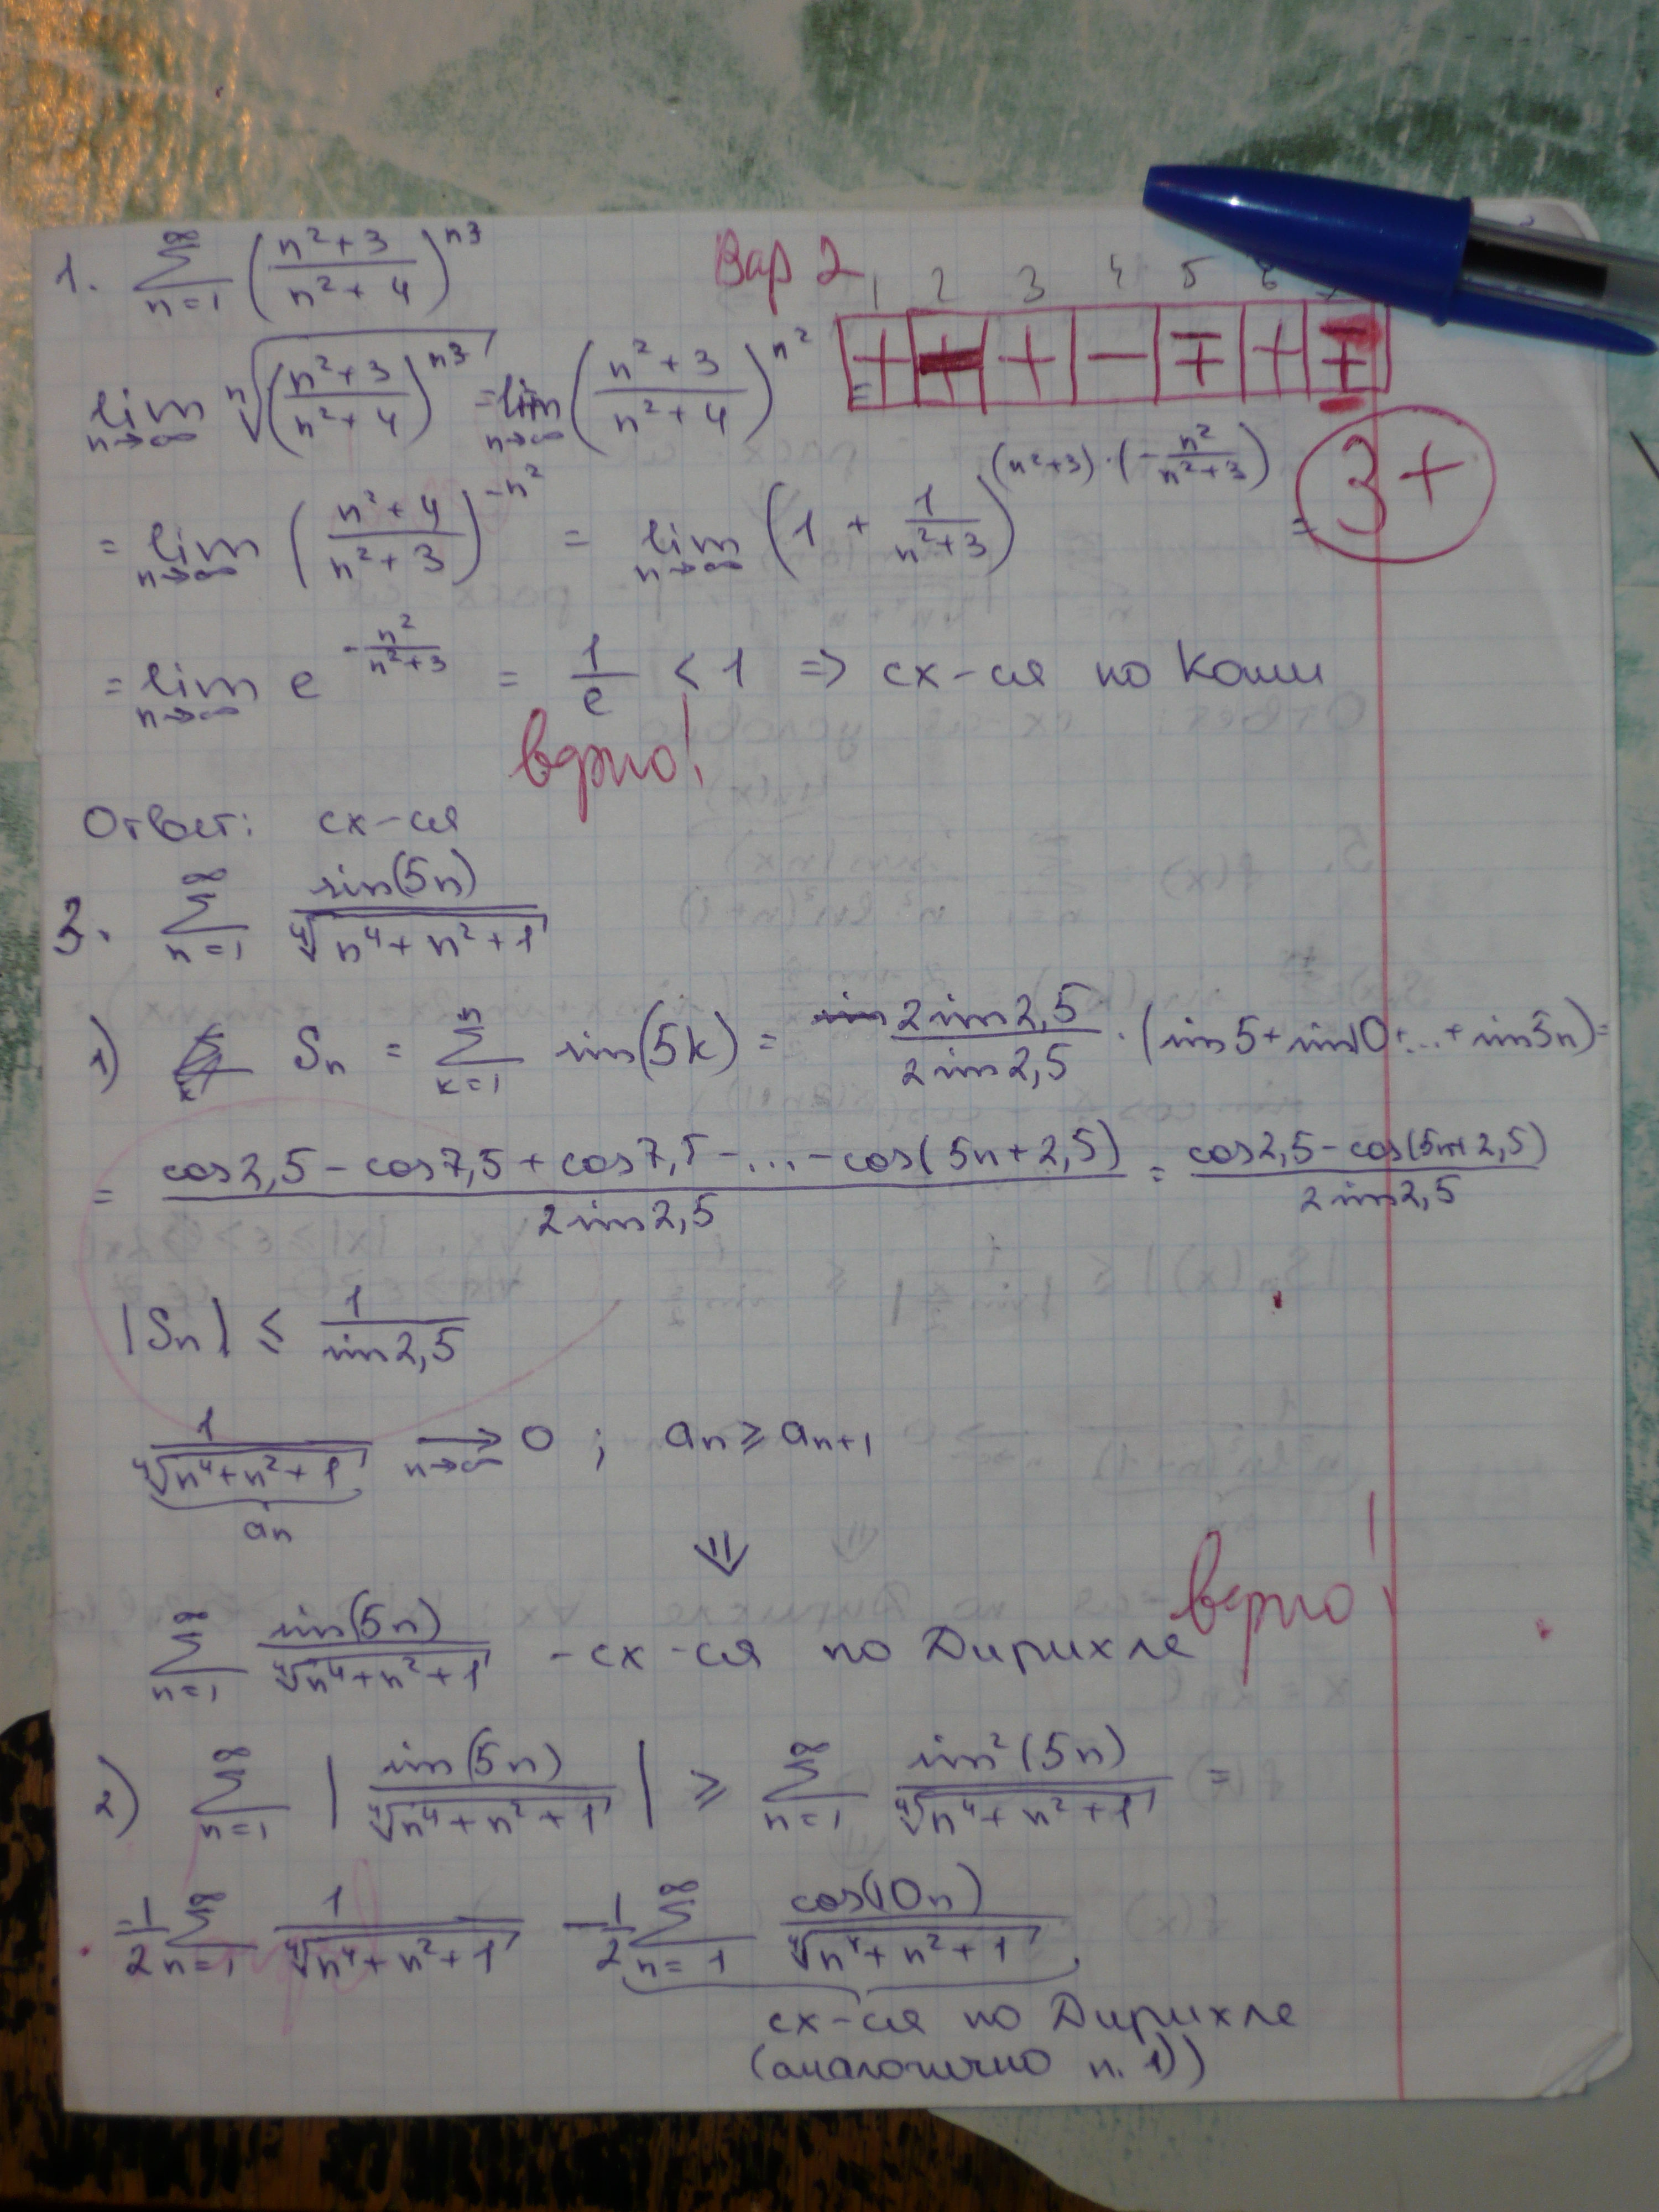 Вар 2
1 2 3 4 5 6
+ + + − ∓ + ∓
3+
1. ∑_{n=1}^{∞} ((n²+3)/(n²+4))^{n³}
lim_{n→∞} ⁿ√(((n²+3)/(n²+4))^{n³}) = lim_{n→∞} ((n²+3)/(n²+4))^{n²} =
= lim_{n→∞} ((n²+4)/(n²+3))^{-n²} = lim_{n→∞} (1 + 1/(n²+3))^{(n²+3)·(-n²/(n²+3))} =
= lim_{n→∞} e^{-n²/(n²+3)} = 1/e < 1 ⇒ сх-ся по Коши
верно!
Ответ: сх-ся
3. ∑_{n=1}^{∞} sin(5n)/⁴√(n⁴+n²+1)
1) Sn = ∑_{k=1}^{n} sin(5k) = 2sin2,5/2sin2,5 · (sin5+sin10+...+sin5n) =
= (cos2,5 - cos7,5 + cos7,5 - ... - cos(5n+2,5))/2sin2,5 = (cos2,5 - cos(5n+2,5))/2sin2,5
|Sn| ≤ 1/sin2,5
1/⁴√(n⁴+n²+1) →_{n→∞} 0 ; an ≥ an+1
an
⇓
∑_{n=1}^{∞} sin(5n)/⁴√(n⁴+n²+1) - сх-ся по Дирихле
верно!
2) ∑_{n=1}^{∞} |sin(5n)/⁴√(n⁴+n²+1)| ≥ ∑_{n=1}^{∞} sin²(5n)/⁴√(n⁴+n²+1) =
= 1/2 ∑_{n=1}^{∞} 1/⁴√(n⁴+n²+1) - 1/2 ∑_{n=1}^{∞} cos(10n)/⁴√(n⁴+n²+1)
сх-ся по Дирихле
(аналогично п. 1))